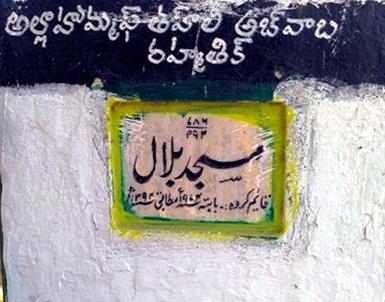 అల్లాహుమ్మఫ్తహలి అబ్వాబ
రహ్మతిక్
۷۸۶
۹۲
مسجد بلال
قائم کردہ:۔ بابتہ ۱۹۷۴ء مطابق ۱۳۹۴ھ